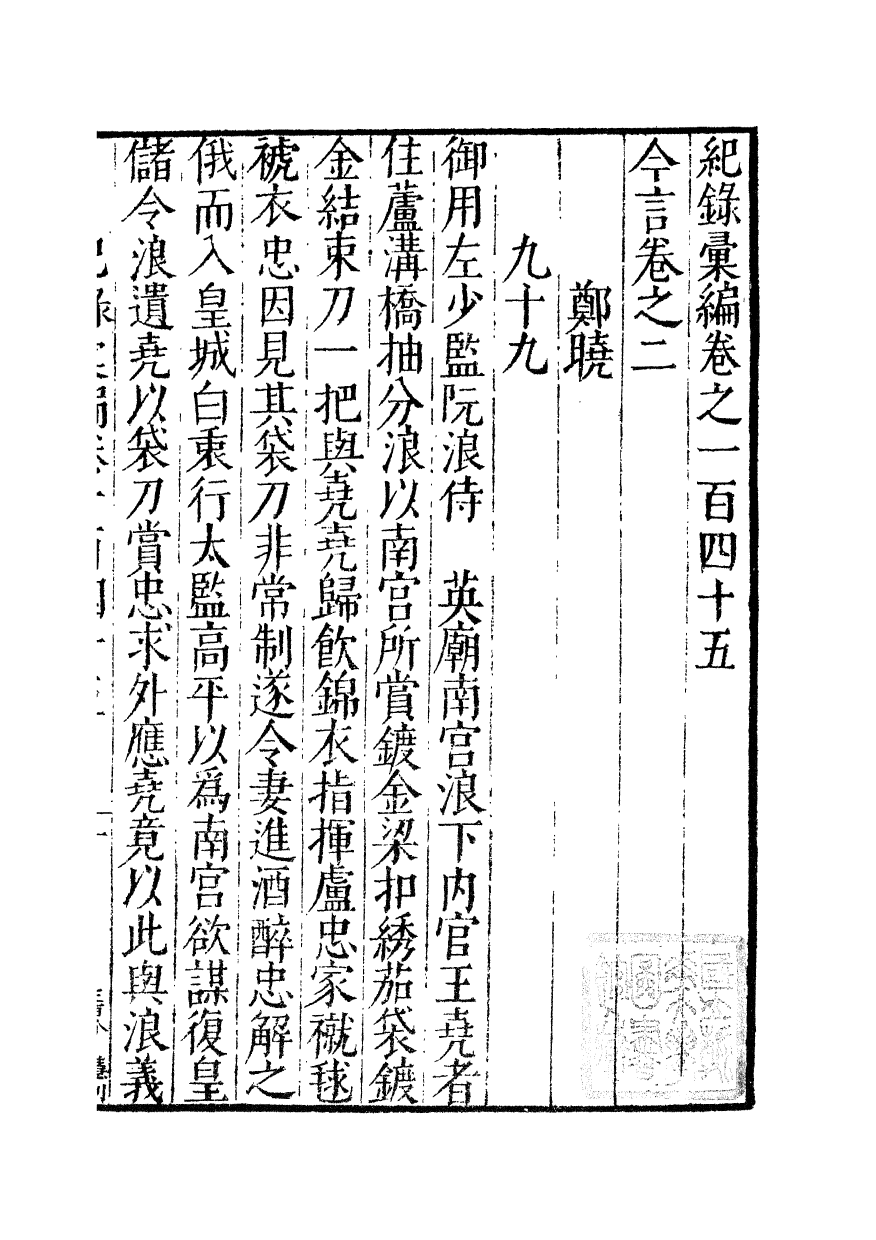 紀錄彙編卷之一百四十五
今言卷之二
鄭曉
九十九
御用左少監阮浪侍　英廟南宮浪下内官王堯者
住蘆溝橋抽分浪以南宮所賞鍍金梁扣綉茄袋鍍
金結束刀一把與堯堯歸飮錦衣指揮盧忠家襳毬
褫衣忠因見其袋刀非常制遂令妻進酒醉忠解之
俄而入皇城白東行太監高平以爲南宮欲謀復皇
儲令浪遺堯以袋刀賞忠求外應堯竟以此與浪義